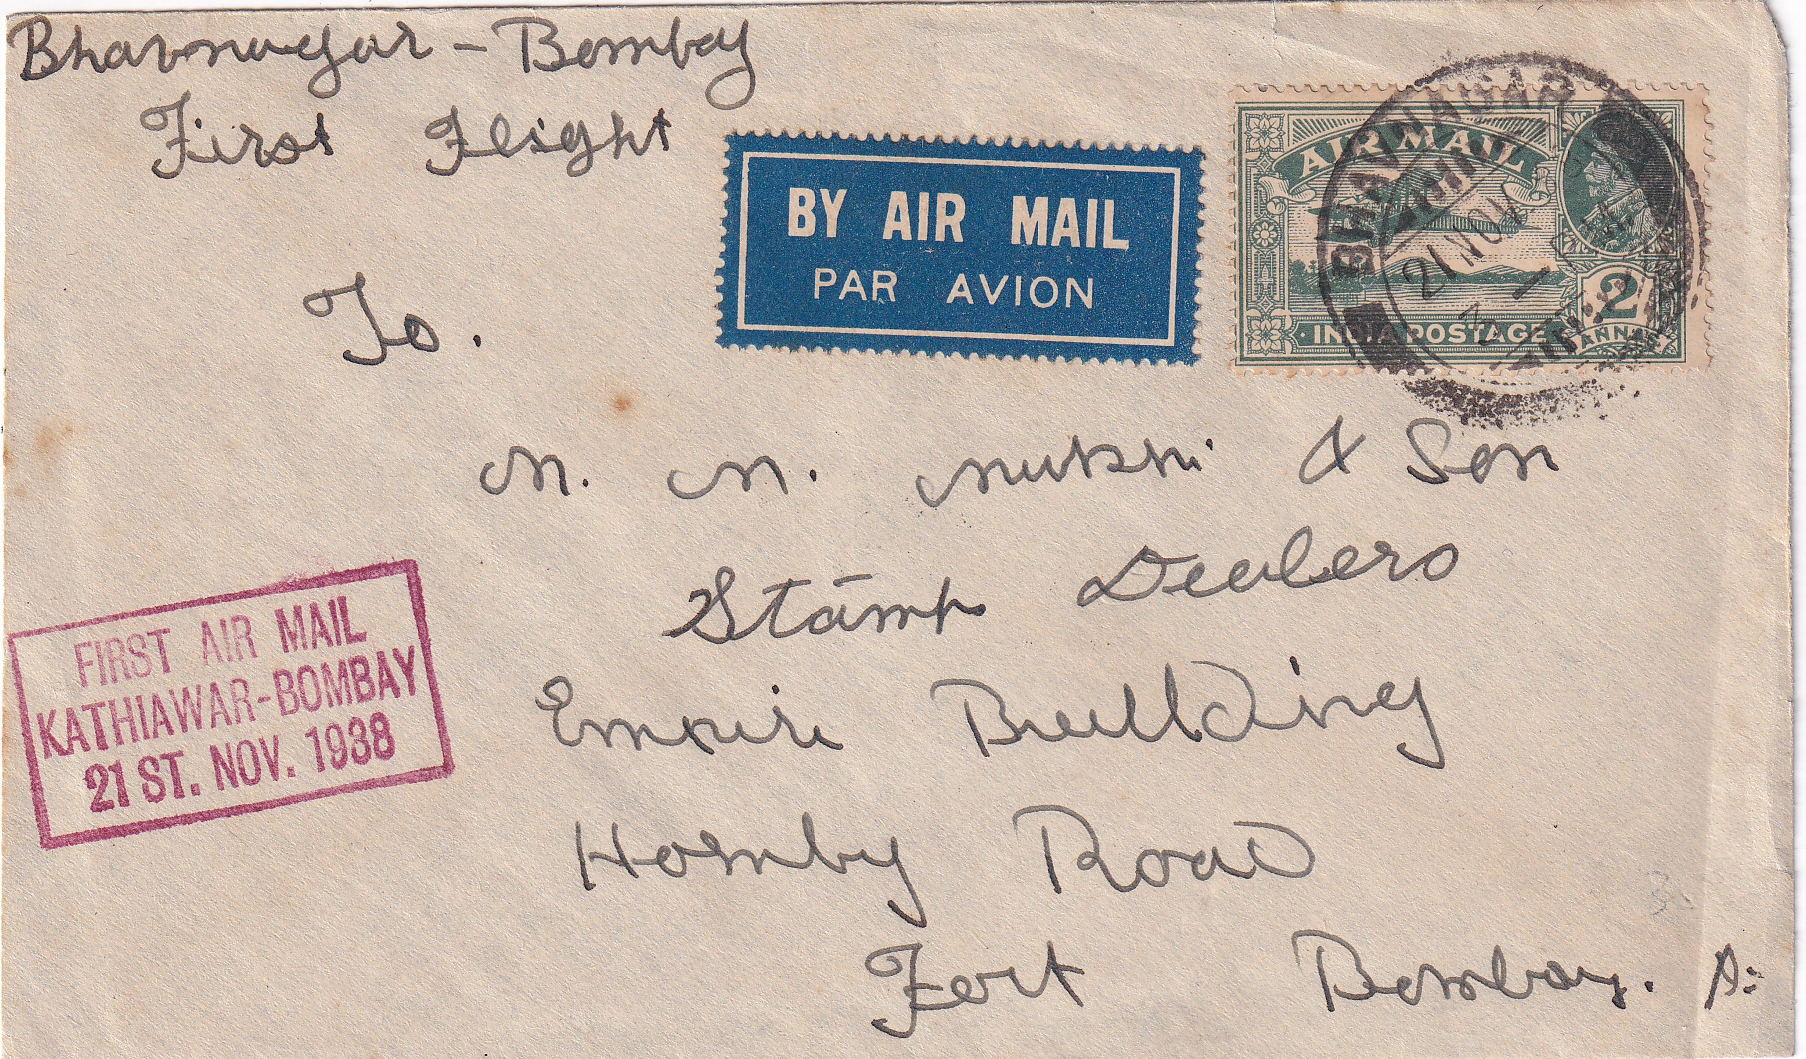 Bhavnagar - Bombay
First Flight
BY AIR MAIL
PAR AVION
AIR MAIL
INDIA POSTAGE
2
ANNAS
BHAVNAGAR
21 NOV
To.
M. M. Mukhi & Son
Stamp Dealers
Empire Building
Hornby Road
Fort Bombay.
FIRST AIR MAIL
KATHIAWAR-BOMBAY
21 ST. NOV. 1938